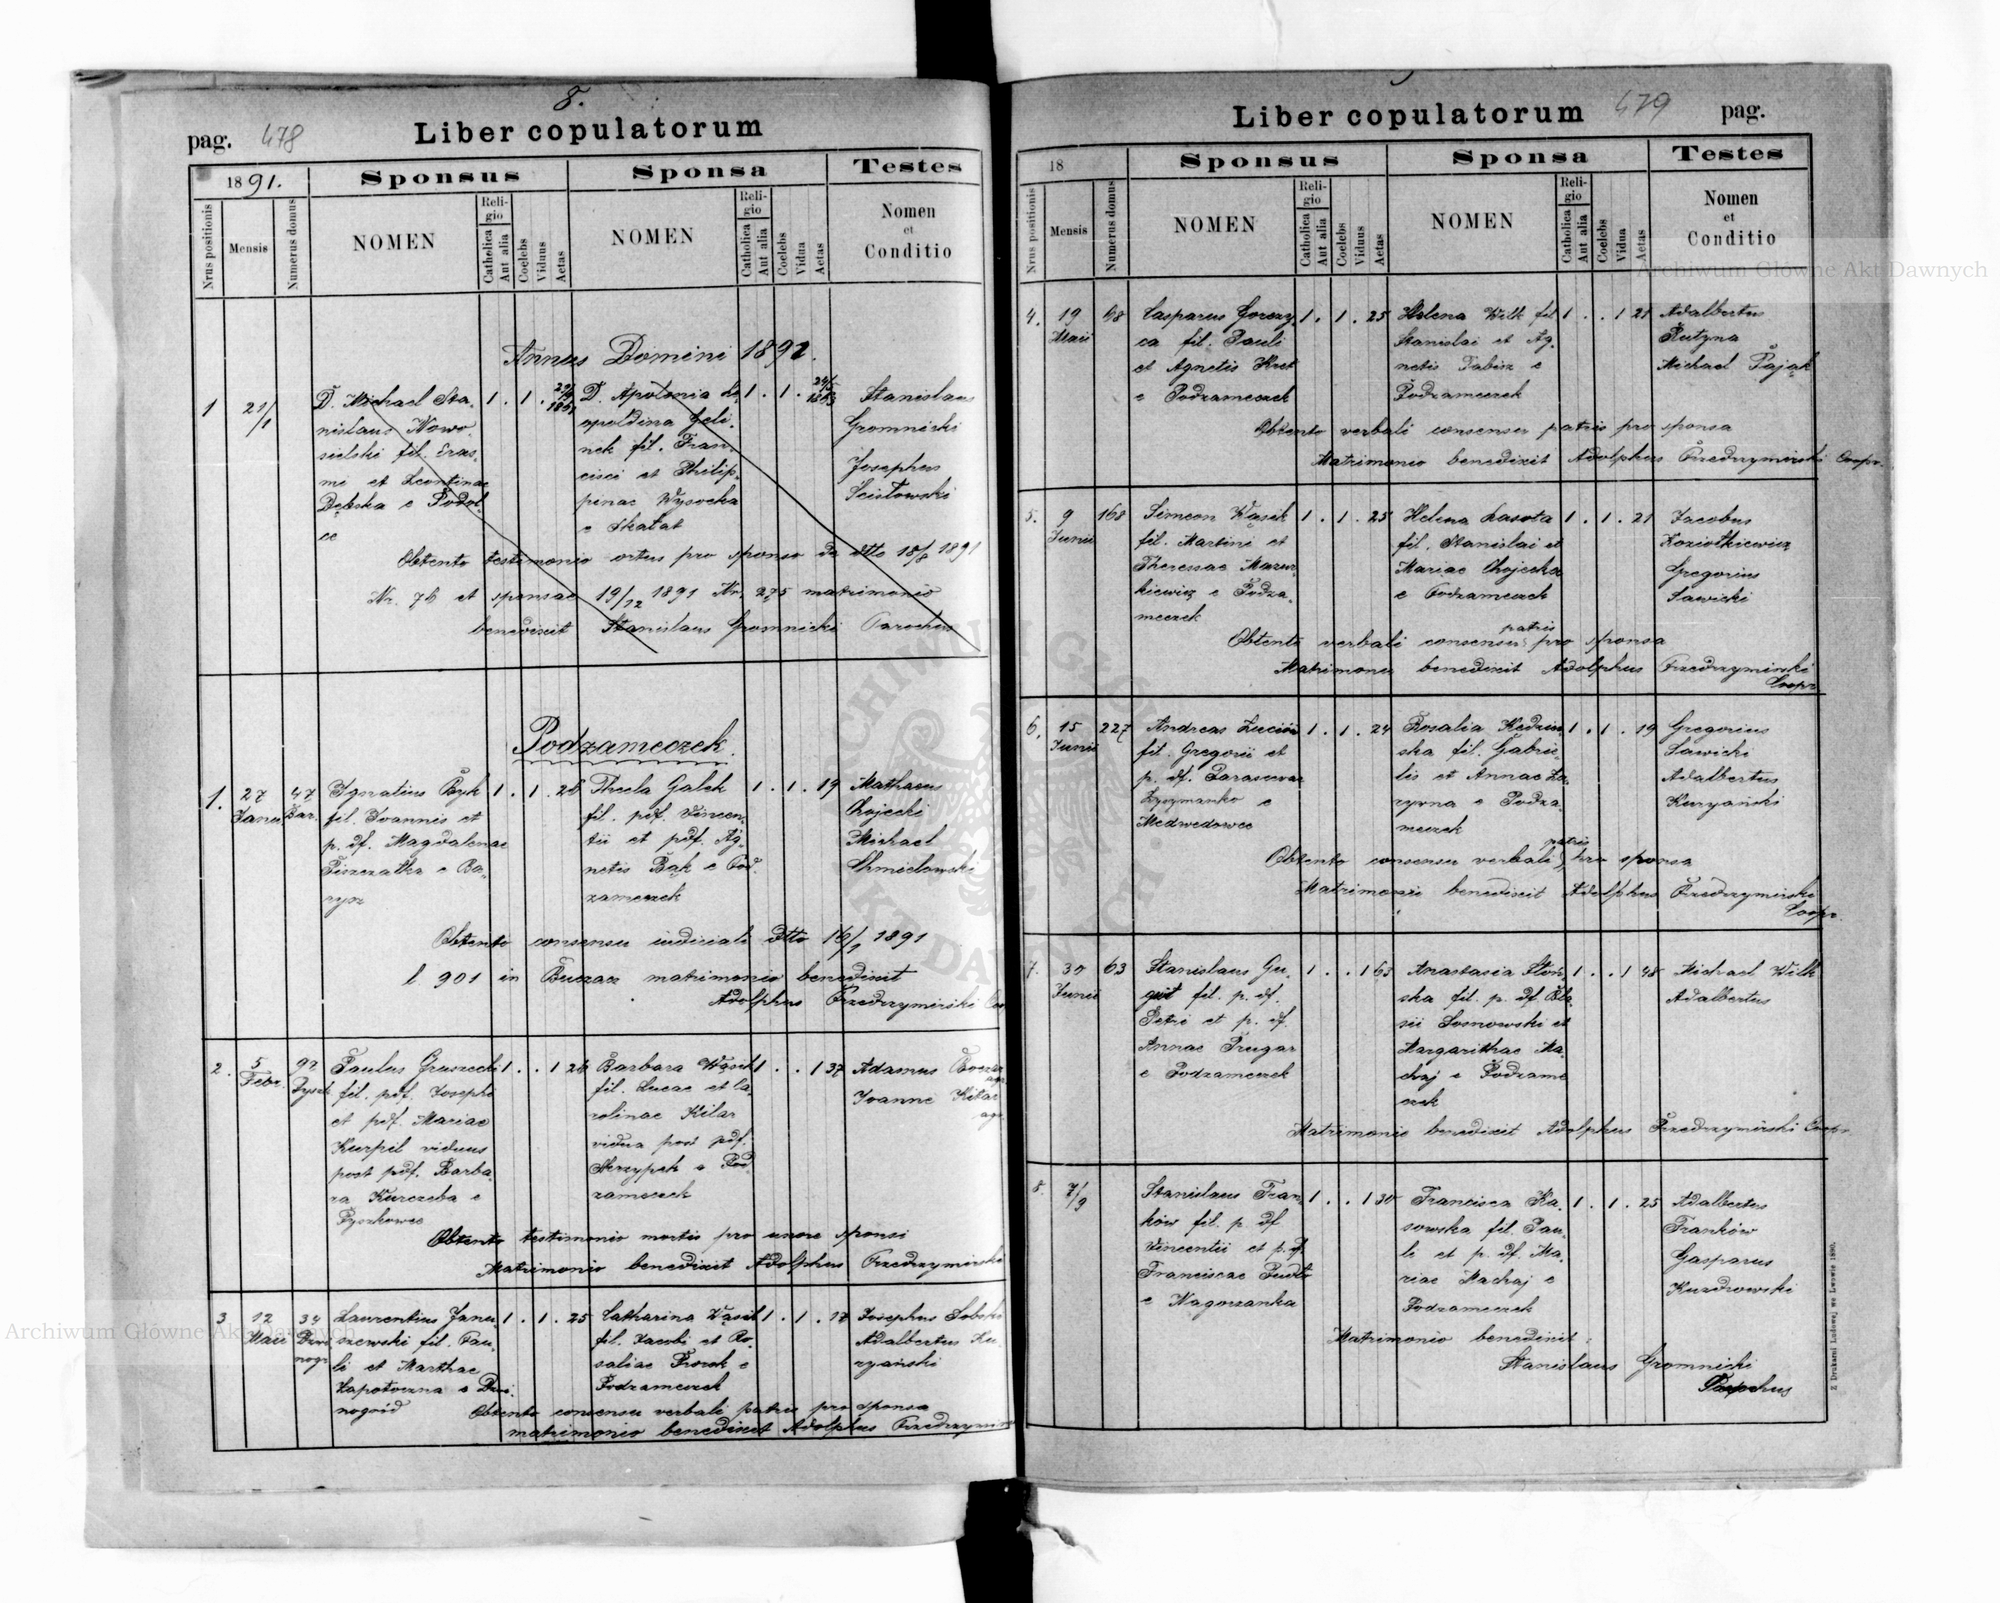 8.
pag. 478
Liber copulatorum
1891.
Sponsus
Sponsa
Testes
Nrus positionis
Mensis
Numerus domus
NOMEN
Religio
Catholica
Aut alia
Coelebs
Viduus
Aetas
NOMEN
Religio
Catholica
Aut alia
Coelebs
Vidua
Aetas
Nomen
et
Conditio
Annus Domini 1892.
1 21/1
D. Michael Sta-
nislaus Nowo-
sielski fil. Eras-
mi et Leontinae
Dębska e Podol-
ce
1 . 1 .
D. Apolonia Le-
opoldina Geli-
nek fil. Fran-
cisci et Philip-
pinae Wysocka
e Skałat
1 . 1 .
Stanislaus
Gromnicki
Josephus
Scisłowski
Obtento testimonio ortus pro sponso de dtto 18/8 1891
Nr. 76 et sponsae 19/12 1891 Nr. 275 matrimonio
benedixit Stanislaus Gromnicki Parochus
Podzameczek.
1. 27 Janu. 47 Bar.
Ignatius Byk
fil. Joannis et
p. df. Magdalenae
Piszczatka e Ba-
rysz
1 . 1 . 26
Thecla Galek
fil. pdf. Vincen-
tii et pdf. Ag-
netis Bąk e Pod-
zameczek
1 . 1 . 19
Mathaeus
Chojecki
Michael
Chmielowski
Obtento consensu iudiciali dtto 16/1 1891
l. 901 in Buczacz matrimonio benedixit
Adolphus Przedrzymirski
2. 5 Febr. 92
Paulus Gruszecki
fil. pdf. Josephi
et pdf. Mariae
Kurpil viduus
post pdf. Barba-
ra Kurczeba e
Pyszkowce
1 . . 1 26
Barbara Wąsik
fil. Lucae et Ca-
rolinae Kilar
vidua post pdf.
Skrzypek e Pod-
zameczek
1 . . 1 37
Adamus
Joannes Kilar
agr.
Obtento testimonio mortis pro uxore sponsi
Matrimonio benedixit Adolphus Przedrzymirski
3 12 Maii 34
Laurentius Janu-
szewski fil. Pau-
li et Marthae
Zapotoczna e Dzwi-
nogród
1 . 1 . 25
Catharina Wąsik
fil. Jacobi et Ro-
saliae Prorok e
Podzameczek
1 . 1 . 18
Josephus Sobski
Adalbertus Ku-
ryański
Obtento consensu verbali patris pro sponsa
matrimonio benedixit Adolphus Przedrzymirs
Liber copulatorum
479
pag.
18
Sponsus
Sponsa
Testes
Nrus positionis
Mensis
Numerus domus
NOMEN
Religio
Catholica
Aut alia
Coelebs
Viduus
Aetas
NOMEN
Religio
Catholica
Aut alia
Coelebs
Vidua
Aetas
Nomen
et
Conditio
4. 19 Maii 68
Casparus Gorczy-
ca fil. Pauli
et Agnetis Kret
e Podzameczek
1 . 1 . 25
Helena Wilk fil.
Stanislai et Ag-
netis Fabisz e
Podzameczek
1 . . 1 21
Adalbertus
Rutyna
Michael Pająk
Obtento verbali consensu patris pro sponsa
Matrimonio benedixit Adolphus Przedrzymirski Coopr.
5. 9 Junii 168
Simeon Wąsik
fil. Martini et
Theressae Mazur-
kiewicz e Podza-
meczek
1 . 1 . 25
Helena Lasota
fil. Stanislai et
Mariae Chojecka
e Podzameczek
1 . 1 . 21
Jacobus
Koziołkiewicz
Gregorius
Sawicki
Obtento verbali consensu patris pro sponsa
Matrimonio benedixit Adolphus Przedrzymirski
Coopr.
6. 15 Junii 227
Andreas Łuciów
fil. Gregorii et
p. df. Parascevae
e
Medwedowce
1 . 1 . 24
Rosalia Kedzier-
ska fil. Gabrie-
lis et Annae
e Podza-
meczek
1 . 1 . 19
Gregorius
Sawicki
Adalbertus
Kuryański
Obtento consensu verbali patris pro sponsa
Matrimonio benedixit Adolphus Przedrzymirski
Coopr.
7. 30 Junii 63
Stanislaus
fil. p. df.
Petri et p. df.
Annae Prugar
e Podzameczek
1 . . 1 63
Anastasia
ska fil. p. df. Bla-
sii Sosnowski et
Margarithae Ma-
chaj e Podzame-
czek
1 . . 1 48
Michael Wilk
Adalbertus
Matrimonio benedixit Adolphus Przedrzymirski Coopr.
8. 7/9
Stanislaus Fran-
ków fil. p. df
Vincentii et p. df.
Franciscae Pudło
e Nagorzanka
1 . . 1 30
Francisca Ka-
sowska fil. Pau-
li et p. df. Ma-
riae Machaj e
Podzameczek
1 . 1 . 25
Adalbertus
Franków
Gasparus
Kuzdrowski
Matrimonio benedixit:
Stanislaus Gromnicki
Parochus
Z Drukarni Ludowej we Lwowie 1890.
Archiwum Główne Akt Dawnych
Archiwum Główne Akt Dawnych
ARCHIWUM GŁÓWNE AKT DAWNYCH